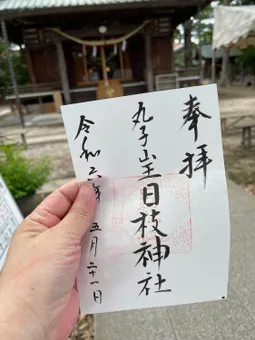 奉拝
丸子山王日枝神社
令和六年五月二十一日